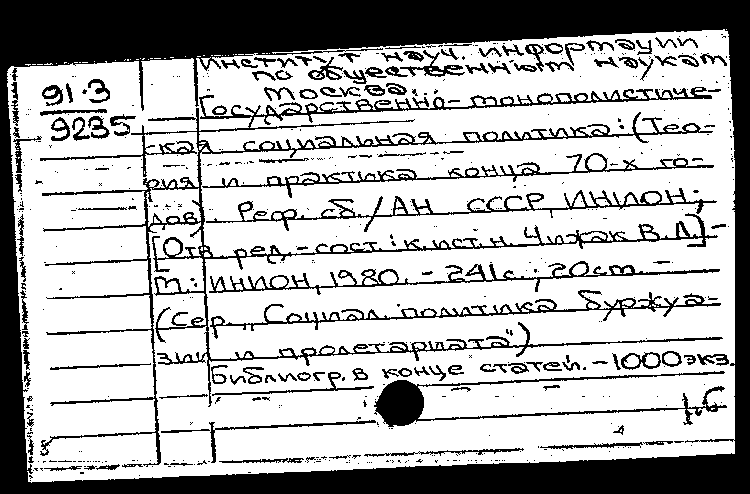 Институт науч. информации
по общественным наукам
Москва.
91.3
9235
Государственно-монополистиче-
ская социальная политика: (Тео-
рия и практика конца 70-х го-
дов). Реф. сб. / АН СССР, ИНИОН;
[Отв. ред.-сост.: к.ист.н. Чижак В.Л.] -
М.: ИНИОН, 1980. - 241с.; 20см. -
(Сер. "Социал. политика буржуа-
зии и пролетариата")
Библиогр. в конце статей. - 1000экз.